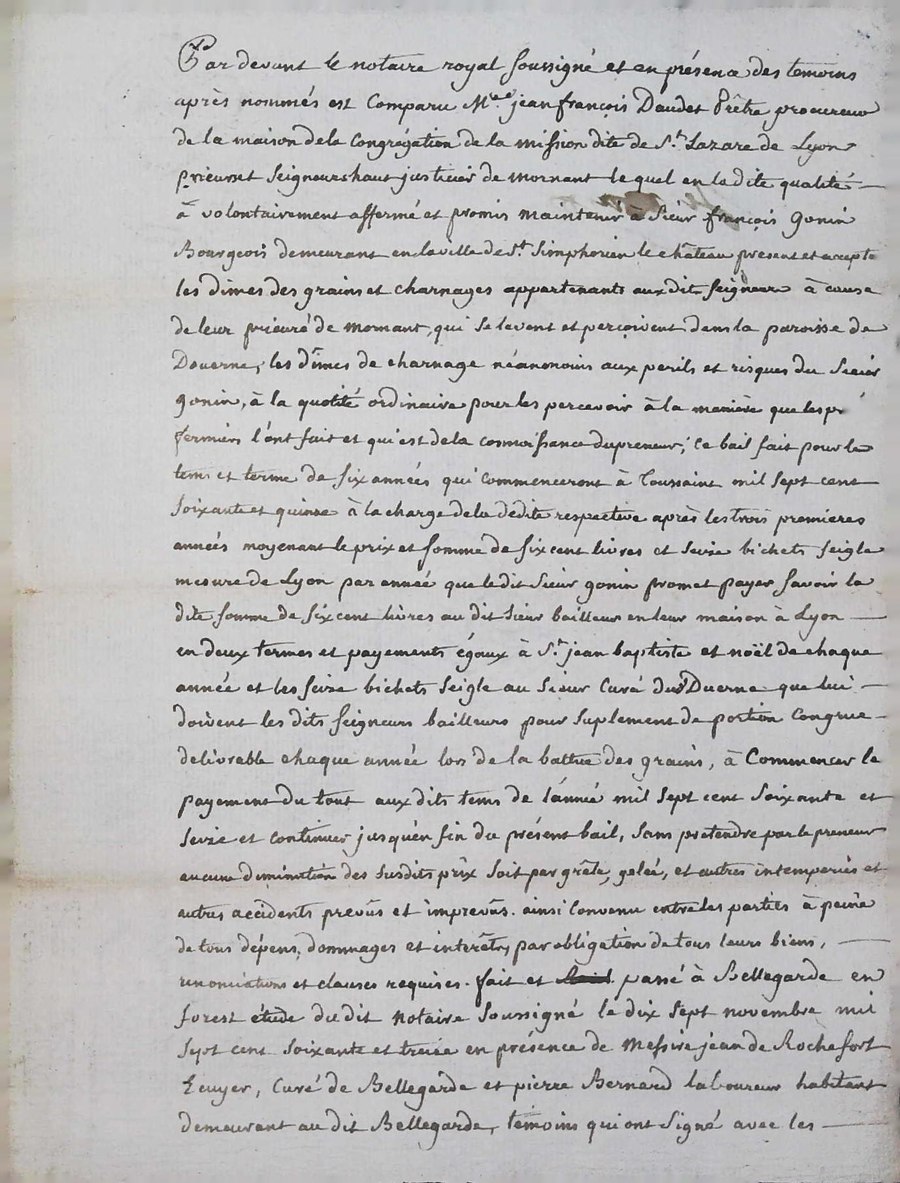 Par devant le notaire royal soussigné et en présence des temoins
après nommés est Comparu Mre jean françois Daudet Prêtre, procureur
de la maison dela Congrégation de la mission dite de St. Lazare de Lyon
prieurs et Seigneurs haut justicier de mornant le quel en la dite qualité
à volontairement affermé et promis maintenir à Sieur françois gonin
Bourgeois demeurant en la ville de St. Simphorien le château present et accepte
les dîmes des grains et charnages appartenants aux dits seigneur à cause
de leur prieuré de mornant, qui se levent et perçoivent dans la paroisse de
Duerne, les dîmes de charnage néanmoins aux perils et risques du Sieur
gonin, à la quotité ordinaire pour les percevoir à la manière que les
fermiers l'ont fait et qui est dela connoissance du preneur; Ce bail fait pour le
tems et terme de six années qui Commenceront à Toussaint mil sept cent
soixante et quinze à la charge de la dédite respective après les trois premieres
années moyenant le prix et somme de six cent livres et seize bichets seigle
mesure de Lyon par année que ledit Sieur gonin promet payer savoir la
dite somme de six cent livres au dit sieur bailleur en leur maison à Lyon
en deux termes et payements égaux à St. jean baptiste et noël de chaque
année et les seize bichets seigle au Sieur Curé de Duerne que lui
doivent les dits seigneurs bailleurs pour suplement de portion Congrue
delivrable chaque année lors de la battue des grains, à Commencer le
payement du tout aux dits tems de l'année mil sept cent soixante et
seize et continuer jusqu'en fin du présent bail, sans pretendre par le preneur
aucune diminution des susdits prix soit par grêle, gelée, et autres intemperies et
autres accidents prevûs et imprevûs. ainsi Convenu entre les parties à peine
de tous dépens, dommages et interêts, par obligation de tous leurs biens,
renonciations et clauses requises. fait et passé à Bellegarde en
forest étude du dit notaire soussigné le dix sept novembre mil
sept cent soixante et treize en présence de Messire jean de Rochefort
Ecuyer, Curé de Bellegarde et pierre Bernard laboureur habitant
demeurant au dit Bellegarde, témoins qui ont signé avec les